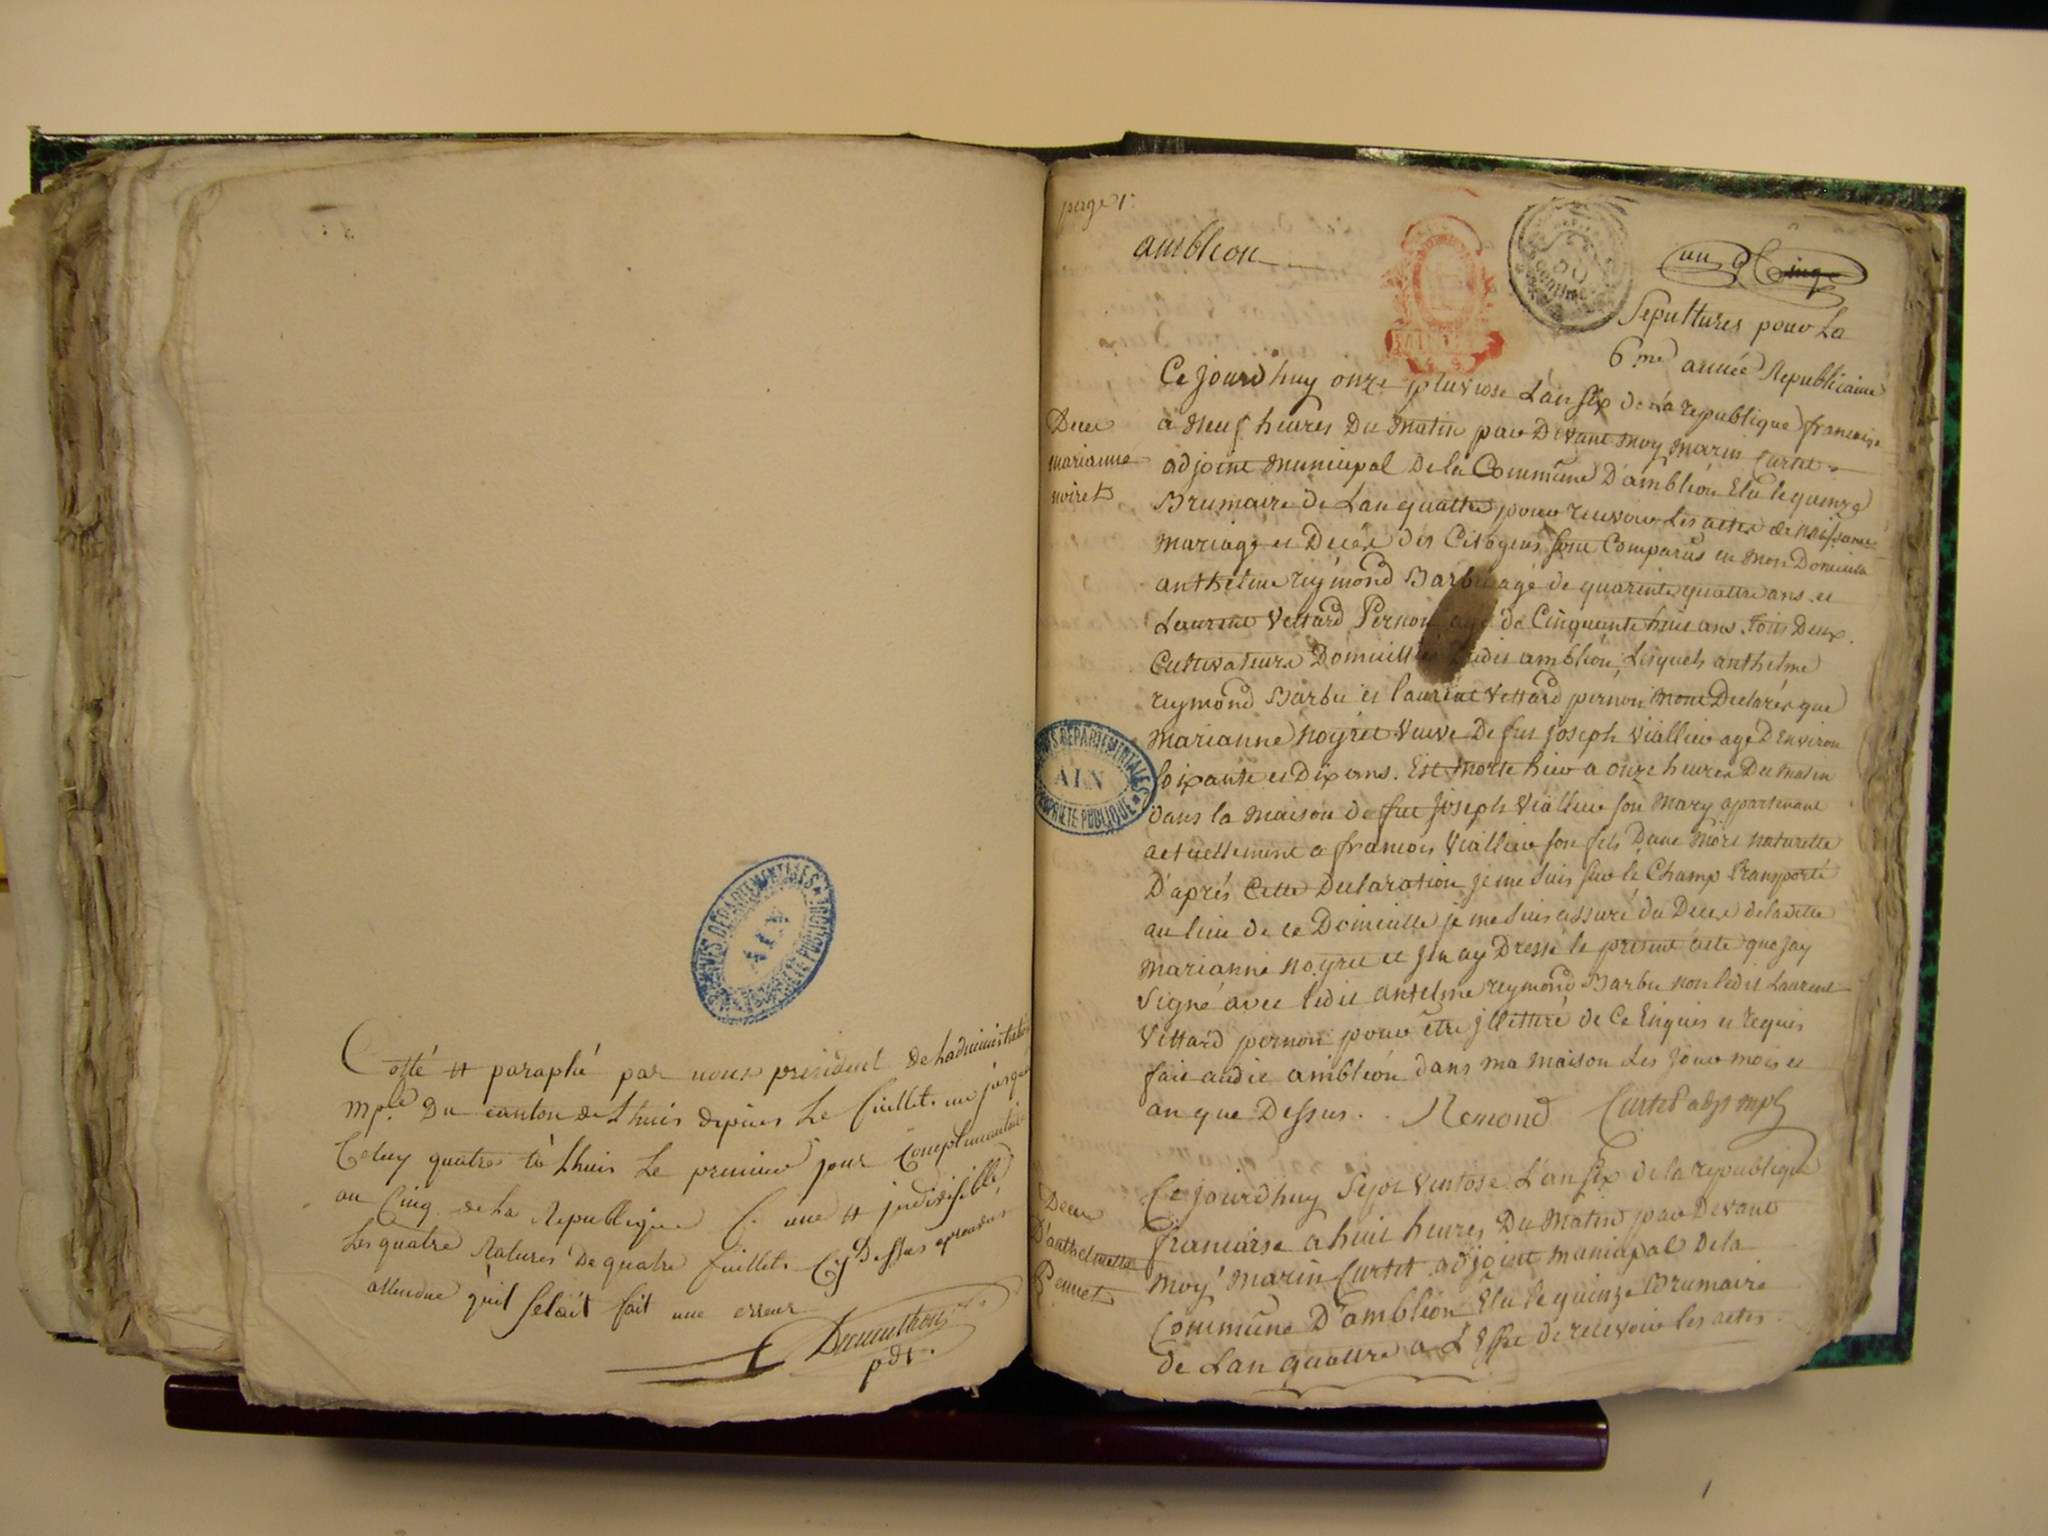 Cotté et paraphé par nous president de Ladministration
mple. du canton de Lhuis depuis Le feuillet un jusqua
Celuy quatre à Lhuis Le premier jour Complementaire
an Cinq de La Republique f. une et jndivisible
Les quatre Ratures de quatre feuillets Cy Dessus aprouvés
attendue qu'il setait fait une erreur
Demonthoux
pdt.
ARCHIVES DEPARTEMENTALES
AIN
PROPRIETE PUBLIQUE
page 1.
ambleon
50
centimes
un Cinq
Sepultures pour La
6.me année Republicaine
Deces
marianne
noiret
Ce jourdhuy onze pluviose Lan six de La republique francoise
a neuf heures Du Matin par Devant moy marin Curtet
adjoint municipal De la Commune D'ambléon Elu le quinze
Brumaire de Lan quattre pour recevoir les actes de naissance
mariage et Decés des Citoyens sont Comparus en mon Domicille
anthelme reymond Barbu agé de quarente quattre ans et
Laurent Vettard Pernon agé de Cinquente huit ans Tous Deux
Cultivateurs Domicilliés audit ambléon, Lesquels anthelme
reymond Barbu et laurent Vettard pernon mont Declarés que
marianne Noyret veuve De feu joseph Viallier agé D'Environ
soixante et Dix ans. Est morte hier a onze heures Du matin
dans la maison de feu joseph Viallier son Mary appartenant
actuellement a francois Viallier son fils D'une More naturelle
D'aprés Cette Declaration je me suis sur le Champ Transporté
au lieu de ce Domicille je me suis assuré du Deces de ladite
Marianne Noyret et jen ay Dressé le present acte que jay
Signé avec ledit antelme reymond Barbu non ledit Laurent
Vettard pernon pour être jllettré de Ce Enquis et requis
fait audit ambléon dans ma maison Les jour mois et
an que Dessus. Remond Curtet adjt mpl
ARCHIVES DEPARTEMENTALES
AIN
PROPRIETE PUBLIQUE
Deces
D'anthelmette
Pennet
Ce jourdhuy Seize Ventose Lan six de la republique
francaise a huit heures Du Matin par Devant
moy marin Curtet adjoint municipal De la
Commune D'ambléon Elu le quinze Brumaire
de Lan quattre a L'Effet de recevoir les actes